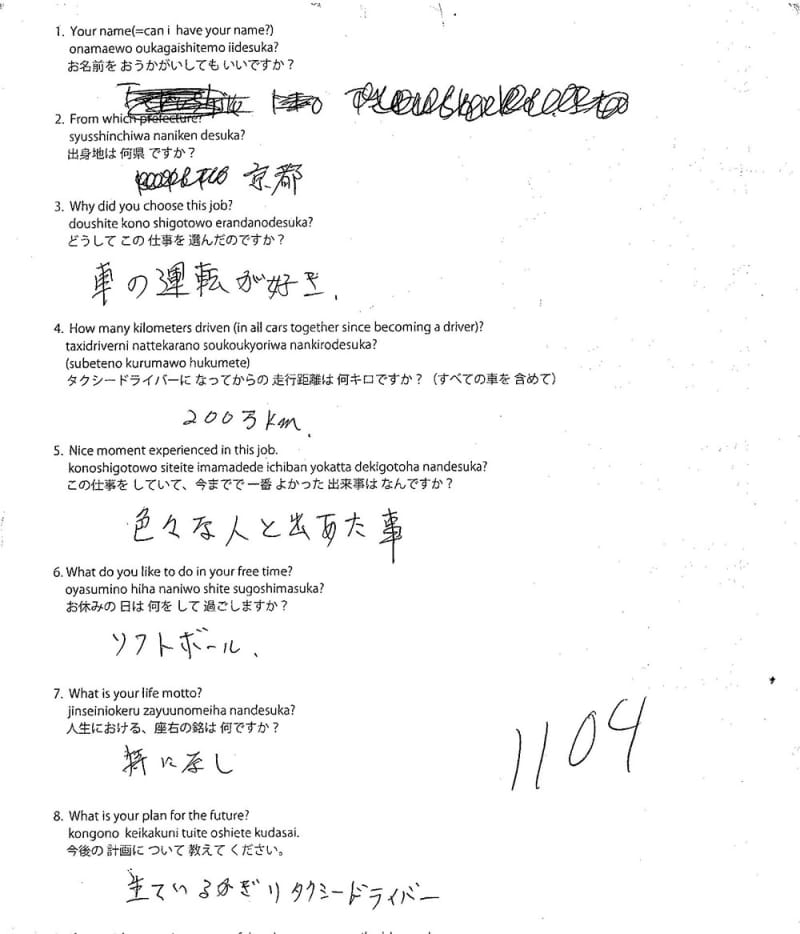 1. Your name(=can i have your name?)
onamaewo oukagaishitemo iidesuka?
お名前を おうかがいしても いいですか？
2. From which prefecture?
syusshinchiwa naniken desuka?
出身地は 何県 ですか？
京都
3. Why did you choose this job?
doushite kono shigotowo erandanodesuka?
どうして この 仕事を 選んだのですか？
車の運転が好き.
4. How many kilometers driven (in all cars together since becoming a driver)?
taxidriverni nattekarano soukoukyoriwa nankirodesuka?
(subeteno kurumawo hukumete)
タクシードライバーに なってからの 走行距離は 何キロですか？（すべての車を 含めて）
200万km.
5. Nice moment experienced in this job.
konoshigotowo siteite imamadede ichiban yokatta dekigotoha nandesuka?
この仕事を していて、今までで 一番 よかった 出来事は なんですか？
色々な人と出あた事
6. What do you like to do in your free time?
oyasumino hiha naniwo shite sugoshimasuka?
お休みの 日は 何を して 過ごしますか？
ソフトボール.
7. What is your life motto?
jinseiniokeru zayuunomeiha nandesuka?
人生における、座右の銘は 何ですか？
特になし
1104
8. What is your plan for the future?
kongono keikakuni tuite oshiete kudasai.
今後の 計画に ついて 教えて ください。
生ているかぎりタクシードライバー